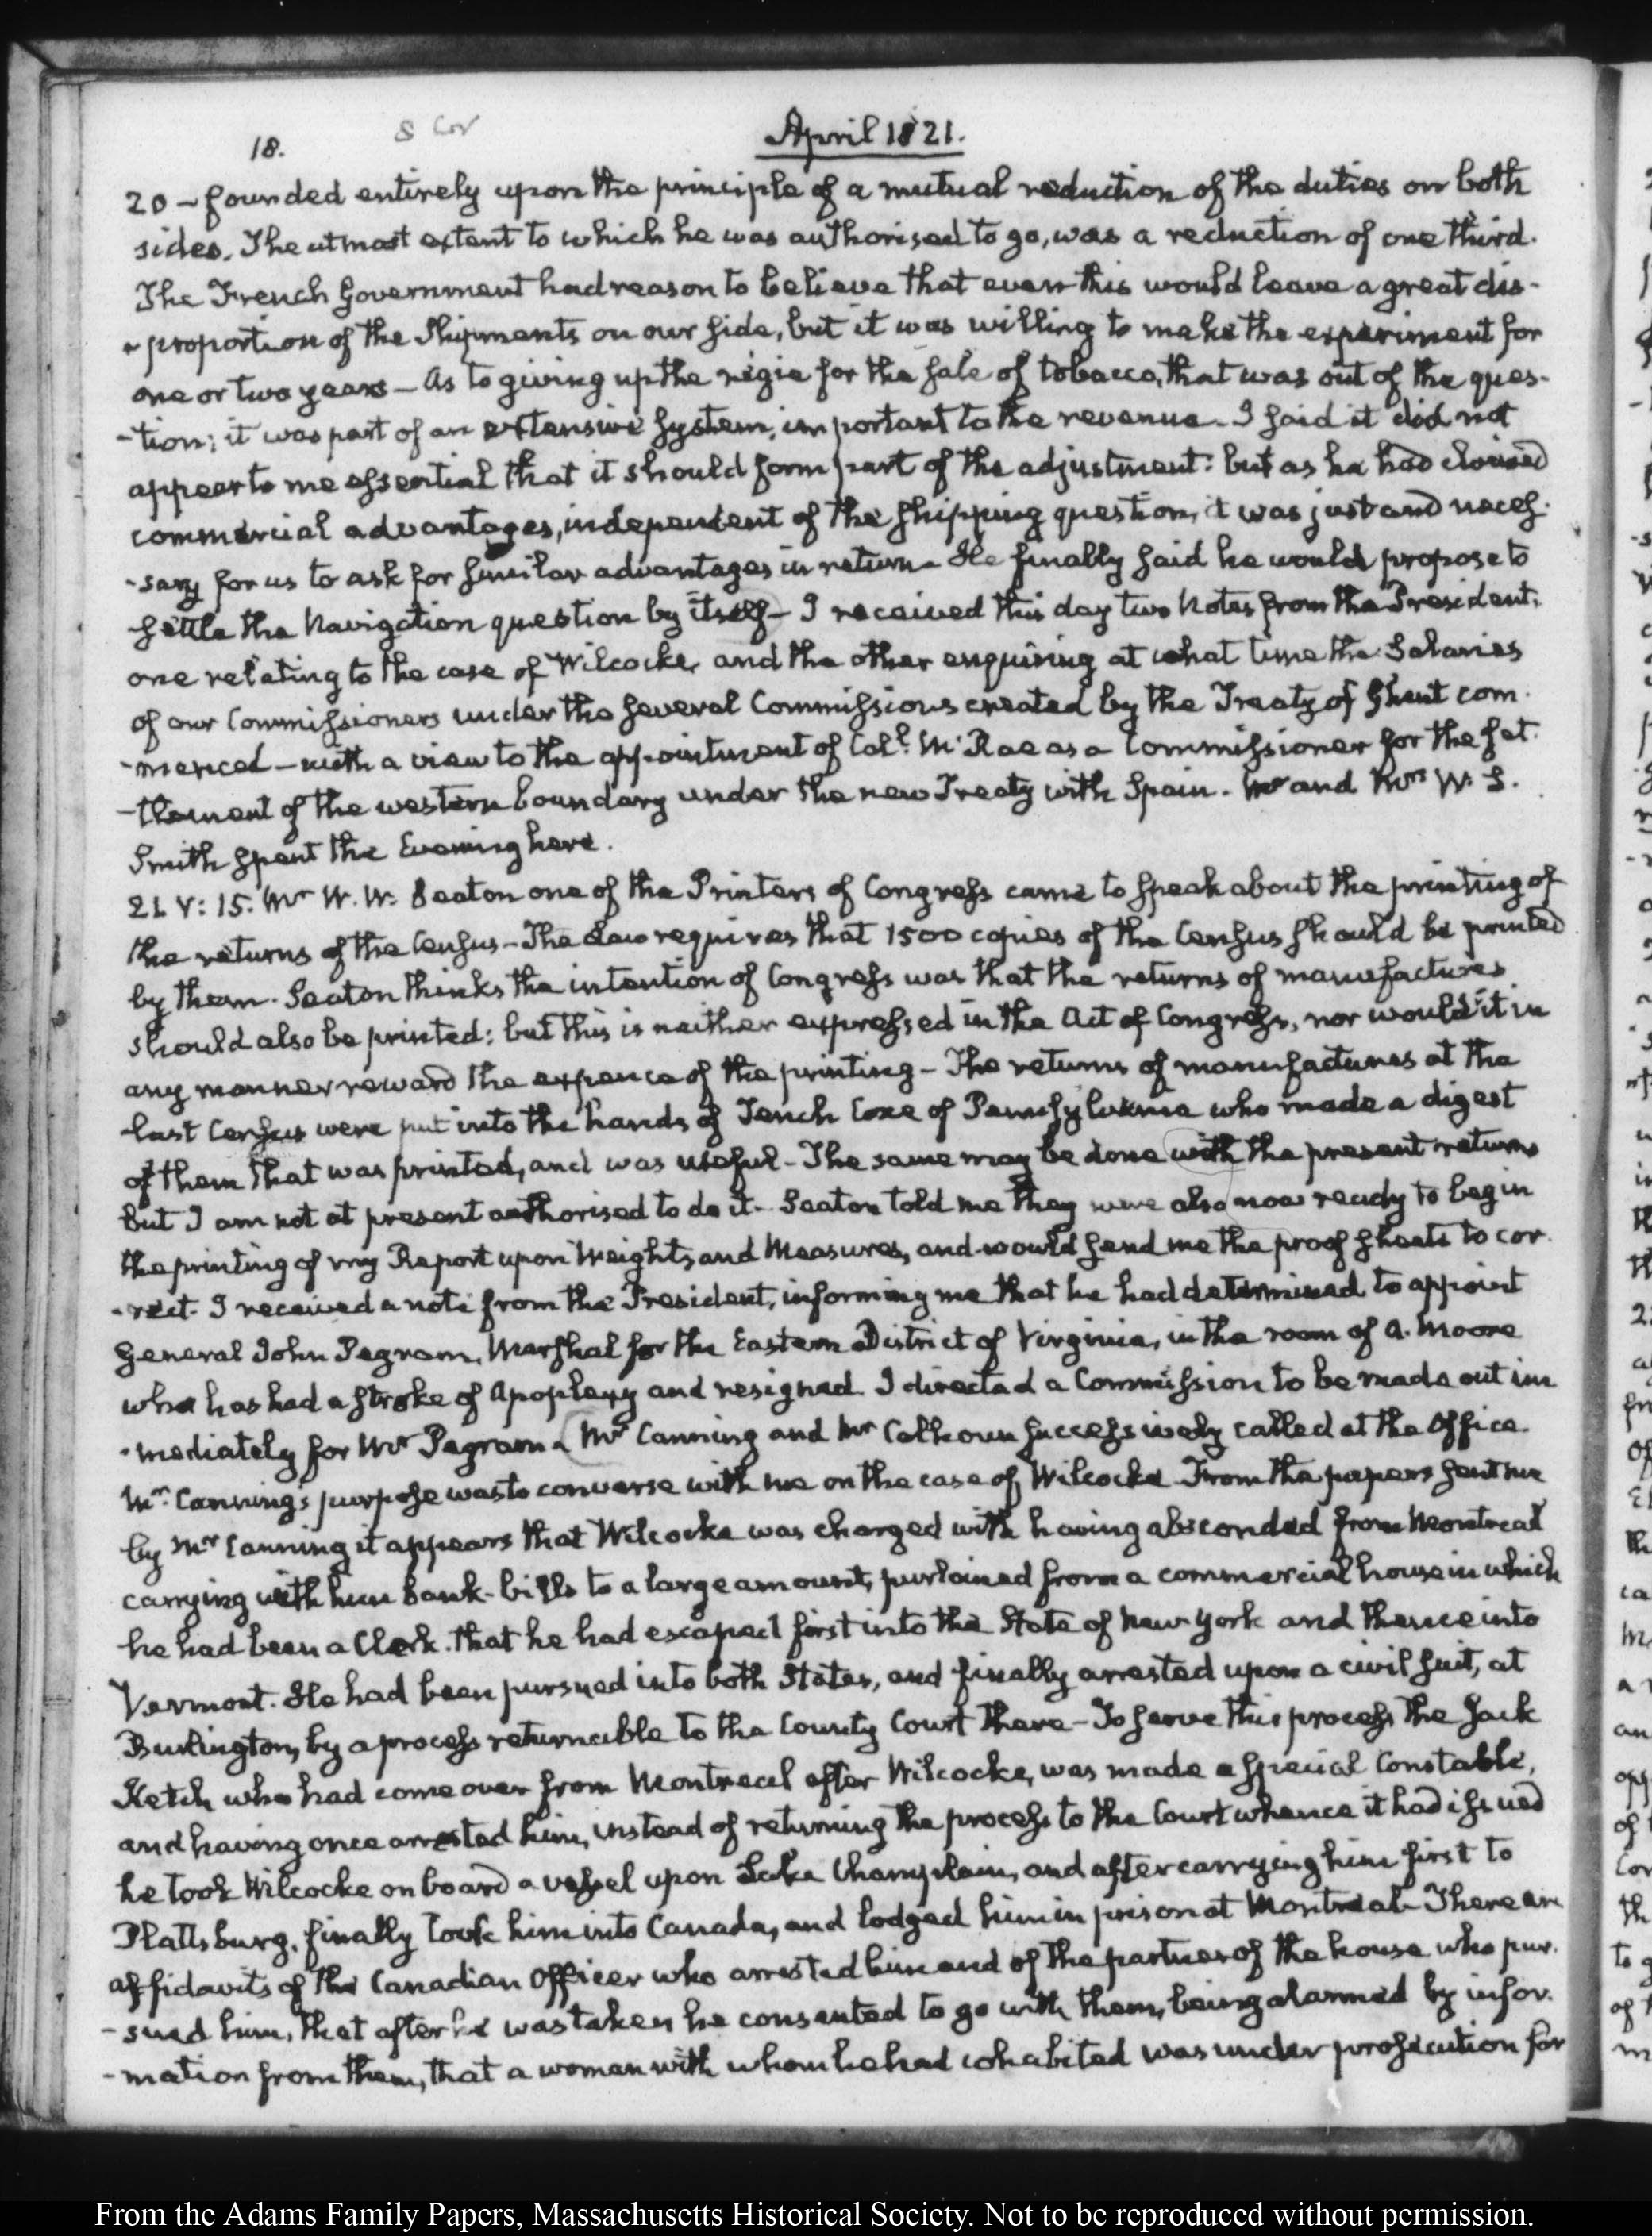 18.
S Cor
April 1821.
20 – founded entirely upon the principle of a mutual reduction of the duties on both
sides. The utmost extent to which he was authorised to go, was a reduction of one third.
The French Government had reason to believe that even this would leave a great dis-
-proportion of the Shipments on our side, but it was willing to make the experiment for
one or two years – As to giving up the régie for the sale of tobacco, that was out of the ques-
-tion; it was part of an extensive system, important to the revenue. I said it did not
appear to me essential that it should form part of the adjustment: but as he had claimed
commercial advantages, independent of the shipping question, it was just and neces-
-sary for us to ask for similar advantages in return – He finally said he would propose to
settle the Navigation question by itself – I received this day two Notes from the President;
one relating to the case of Wilcocke, and the other enquiring at what time the Salaries
of our Commissioners under the several Commissions created by the Treaty of Ghent com-
-menced – with a view to the appointment of Coll. McRae as a Commissioner for the set-
-tlement of the western boundary under the new Treaty with Spain. Mr and Mrs W. S.
Smith spent the Evening here.
21. V: 15. Mr W. W. Seaton one of the Printers of Congress came to speak about the printing of
the returns of the Census – The Law requires that 1500 copies of the Census should be printed
by them. Seaton thinks the intention of Congress was that the returns of manufactures
should also be printed: but this is neither expressed in the Act of Congress, nor would it in
any manner reward the expence of the printing – The returns of manufactures at the
last Census were put into the hands of Tench Coxe of Pennsylvania who made a digest
of them that was printed, and was useful – The same may be done with the present returns
but I am not at present authorised to do it – Seaton told me they were also now ready to begin
the printing of my Report upon Weights and Measures, and would send me the proof sheets to cor-
-rect. I received a note from the President, informing me that he had determined to appoint
General John Pegram, Marshal for the Eastern District of Virginia, in the room of A. Moore
who has had a stroke of Apoplexy and resigned. I directed a Commission to be made out im-
-mediately for Mr Pegram. (Mr Canning and Mr Calhoun successively called at the Office.
Mr. Canning's purpose was to converse with me on the case of Wilcocke. From the papers sent me
by Mr Canning it appears that Wilcocke was charged with having absconded from Montreal
carrying with him Bank-bills to a large amount, purloined from a commercial house in which
he had been a Clerk. that he had escaped first into the State of New-York and thence into
Vermont. He had been pursued into both States, and finally arrested upon a civil suit, at
Burlington, by a process returnable to the County Court there – To serve this process, the Jack
Ketch who had come over from Montreal after Wilcocke, was made a special Constable,
and having once arrested him, instead of returning the process to the Court whence it had issued
he took Wilcocke on board a vessel upon Lake Champlain, and after carrying him first to
Plattsburg, finally took him into Canada, and lodged him in prison at Montreal – There are
affidavits of the Canadian Officer who arrested him and of the partner of the house who pur-
-sued him, that after he was taken he consented to go with them, being alarmed by infor-
-mation from them, that a woman with whom he had cohabited was under prosecution for
From the Adams Family Papers, Massachusetts Historical Society. Not to be reproduced without permission.